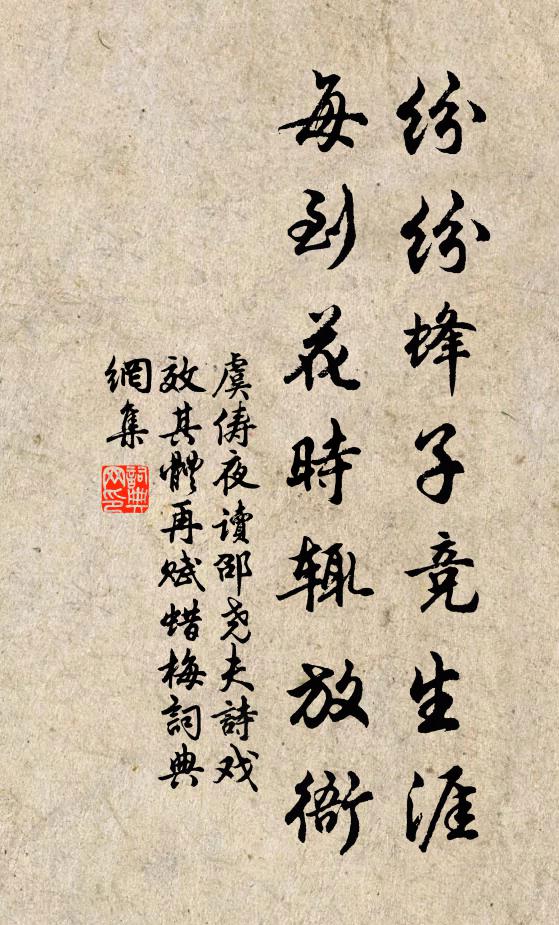 纷纷蜂子竞生涯
每到花時辄放衙
虞俦夜讀邵尧夫詩戏
效其體再赋蜡梅詞典
網集
詞典網印